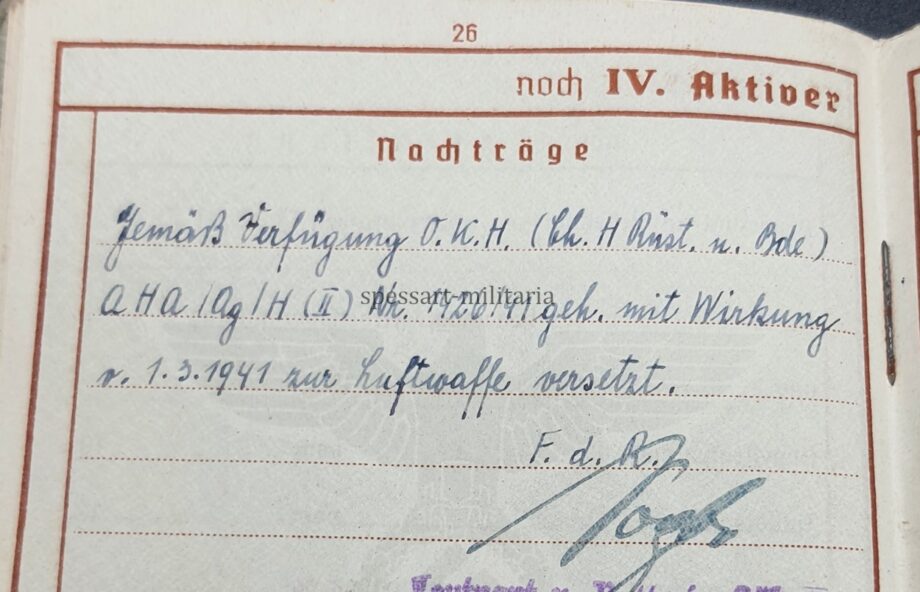 26
noch IV. Aktiver
Nachträge
Gemäß Verfügung O.K.H. (Ch. H Rüst. u. Bde)
AHA/Ag/H (II) Nr. 1426/41 geh. mit Wirkung
spessart-militaria
v. 1.3.1941 zur Luftwaffe versetzt.
F. d. R.
Leutnant u.